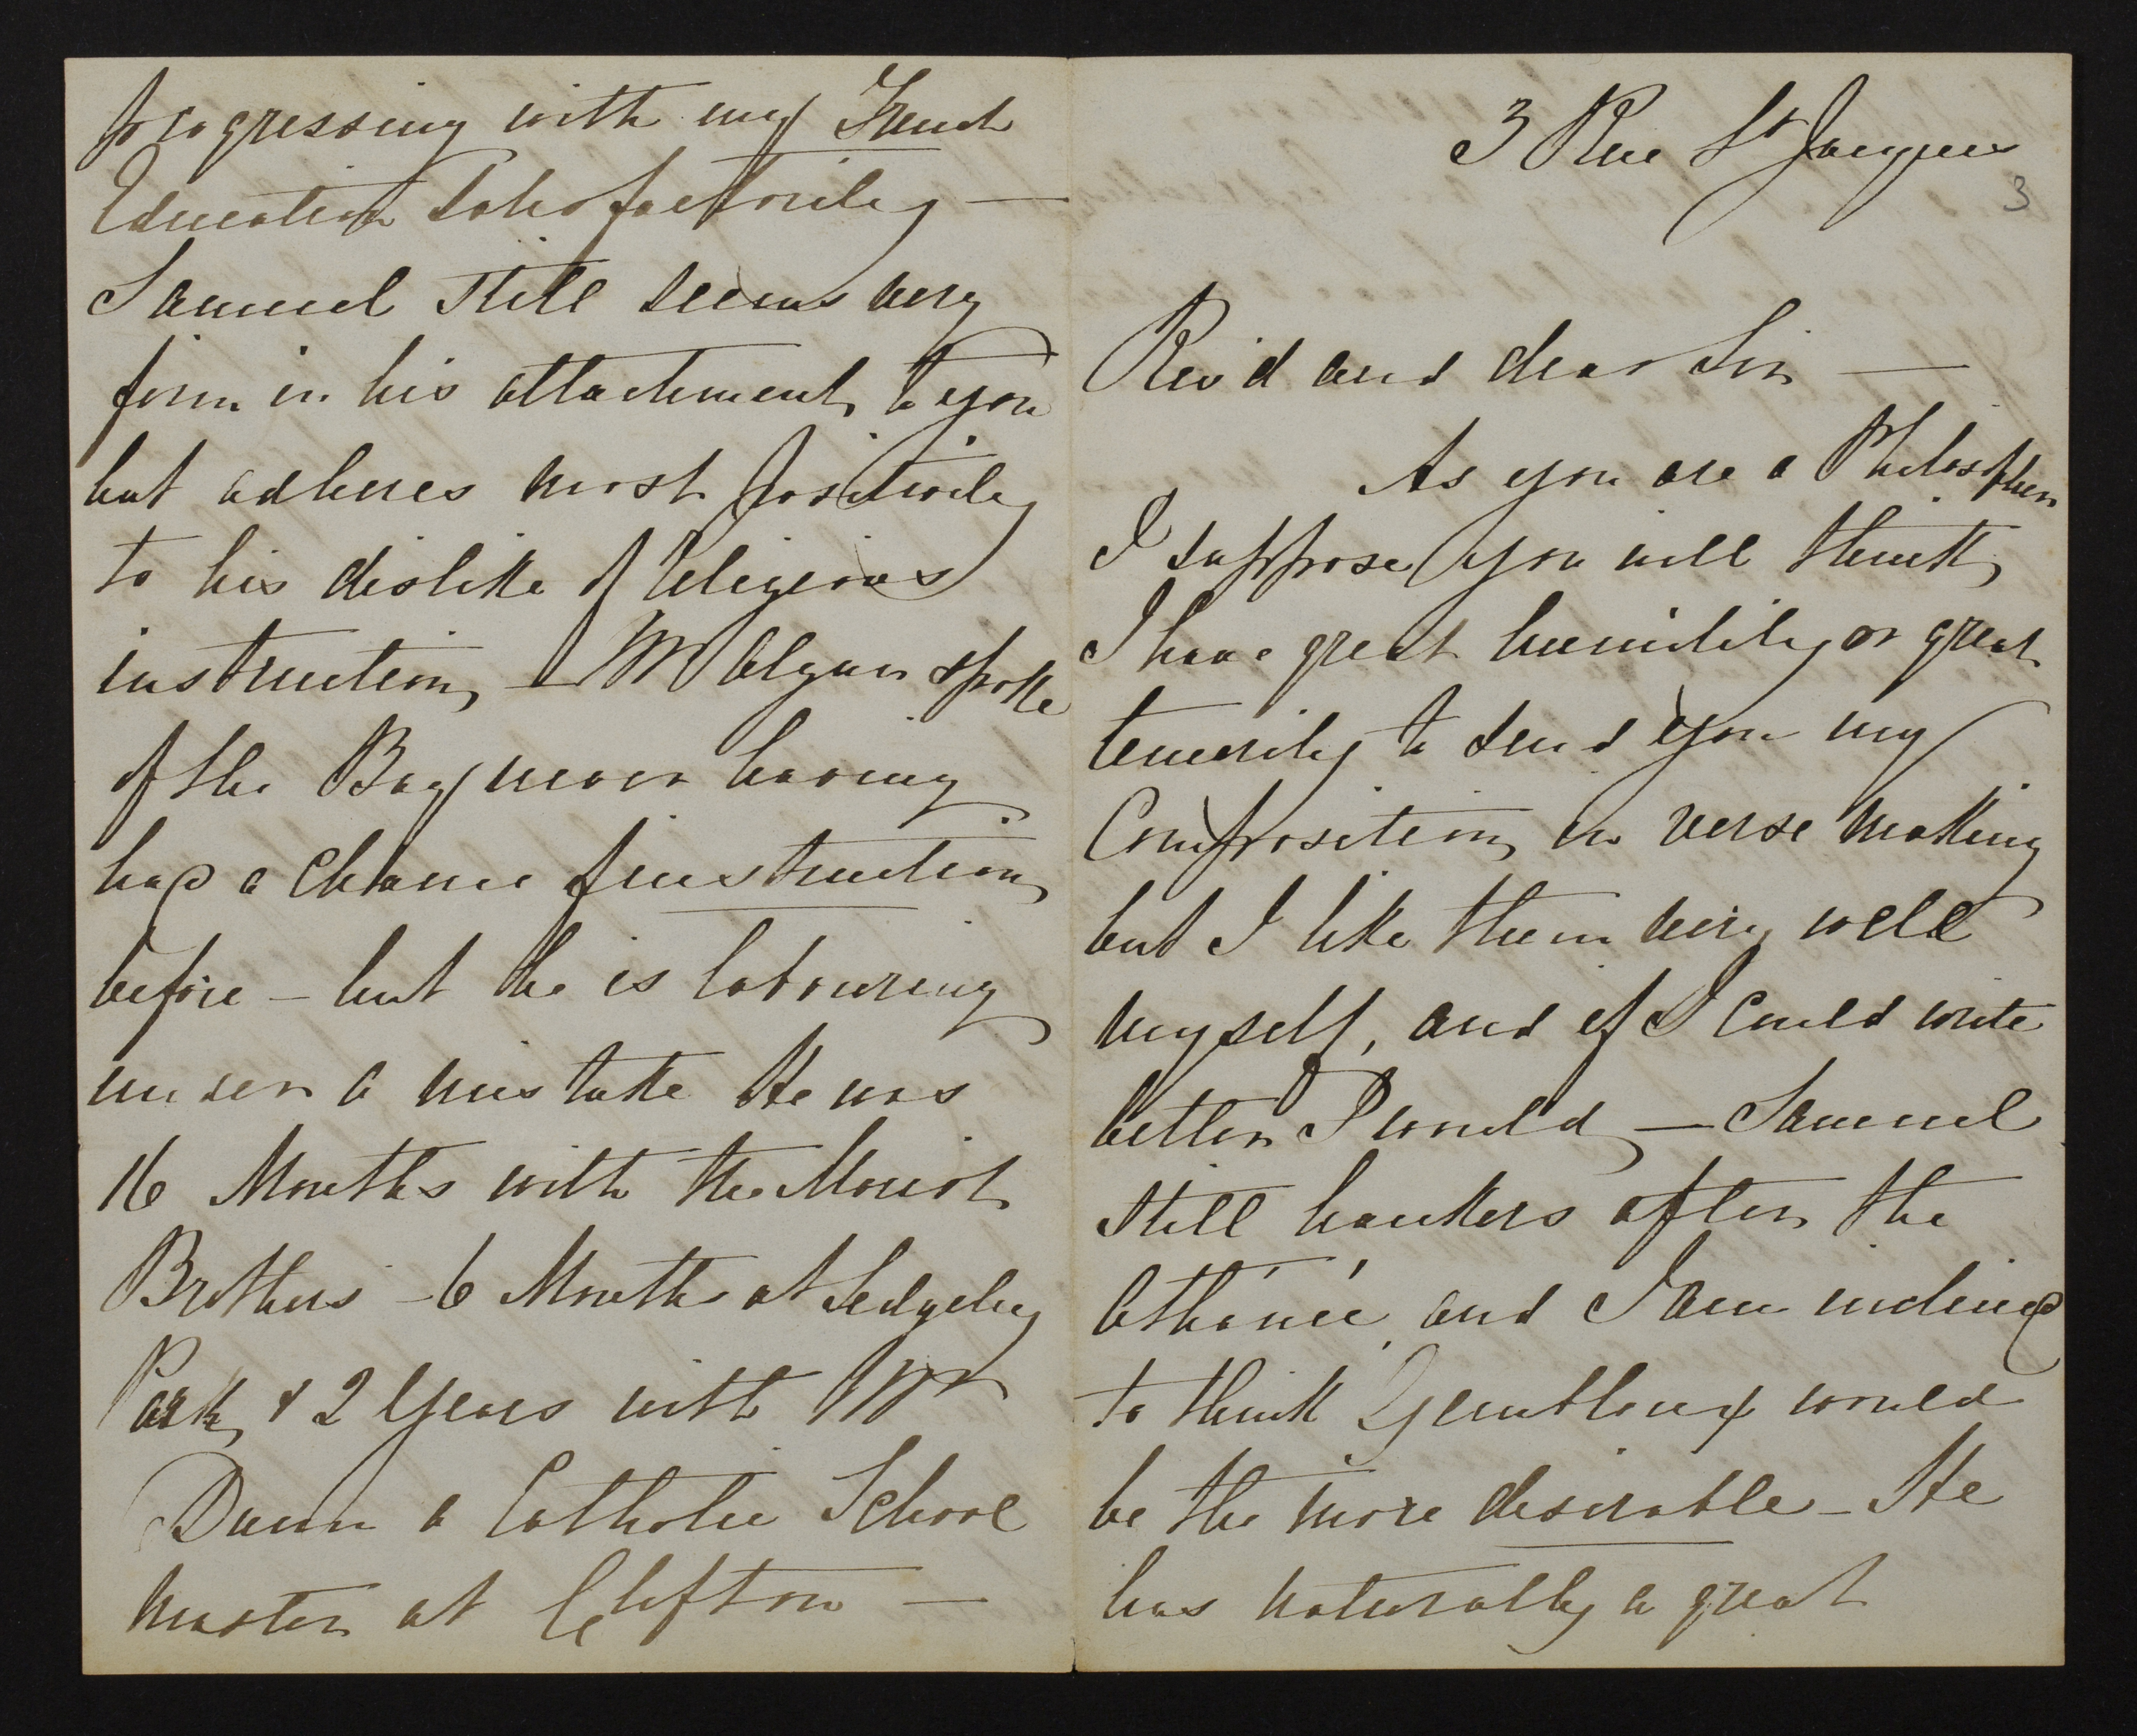 3 Rue St Jacques
3
Rev'd and dear Sir —
As you are a Philosopher
I suppose you will think
I have great humility or great
temerity to send you my
Composition in verse making
but I like them very well
myself, and if I could write
better I would — Samuel
still hankers after the
and I am inclined
to think Gembloux would
be the more desirable — He
has naturally a great
progressing with my French
Education satisfactorily —
Samuel still seems very
firm in his attachment to you
but adheres most positively
to his dislike of Religious
instruction, — Mr Algar spoke
of the Boy never having
had a chance of instruction
before — but he is labouring
under a mistake He was
16 Months with the Marist
Brothers — 6 Months at Sedgeley
Park, & 2 Years with Mr
Dunn a Catholic School
master at Clifton —